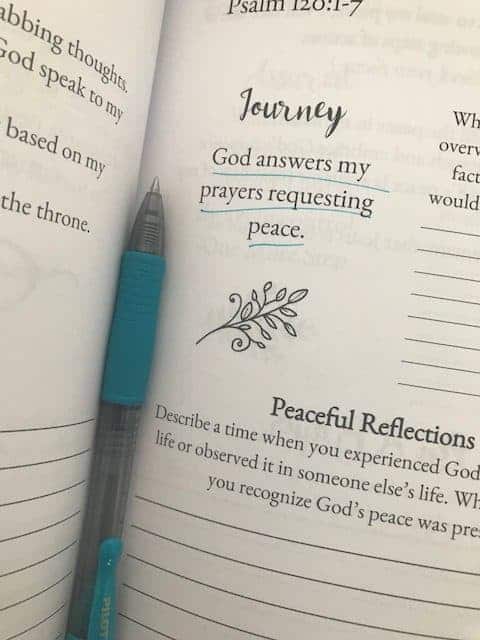 abbing thoughts.
God speak to my
based on my
the throne.
Psalm 120:1-7
Journey
God answers my
prayers requesting
peace.
Wh
overw
fact
would
Peaceful Reflections
Describe a time when you experienced God
life or observed it in someone else's life. Wh
you recognize God's peace was pre
PILOT